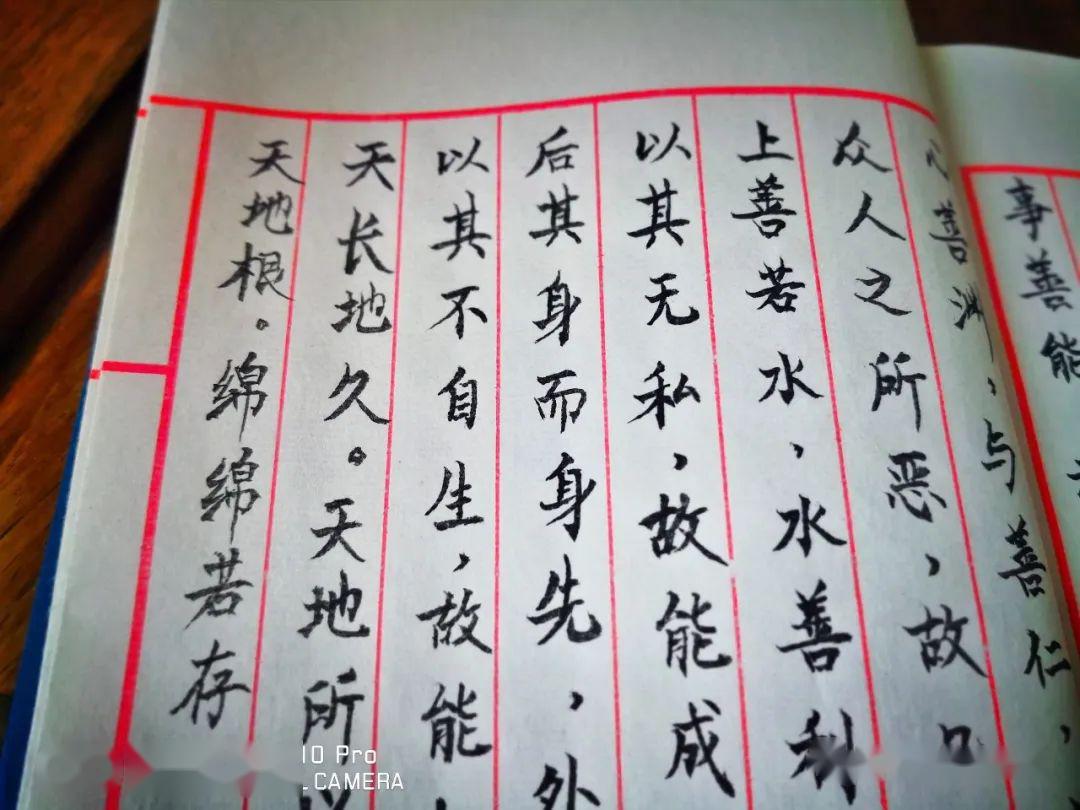 天地根。绵绵若存
天长地久。天地所
以其不自生，故能
后其身而身先，外
以其无私，故能成
上善若水，水善利
众人之所恶，故
心善渊，与善仁，
事善能
10 Pro
CAMERA